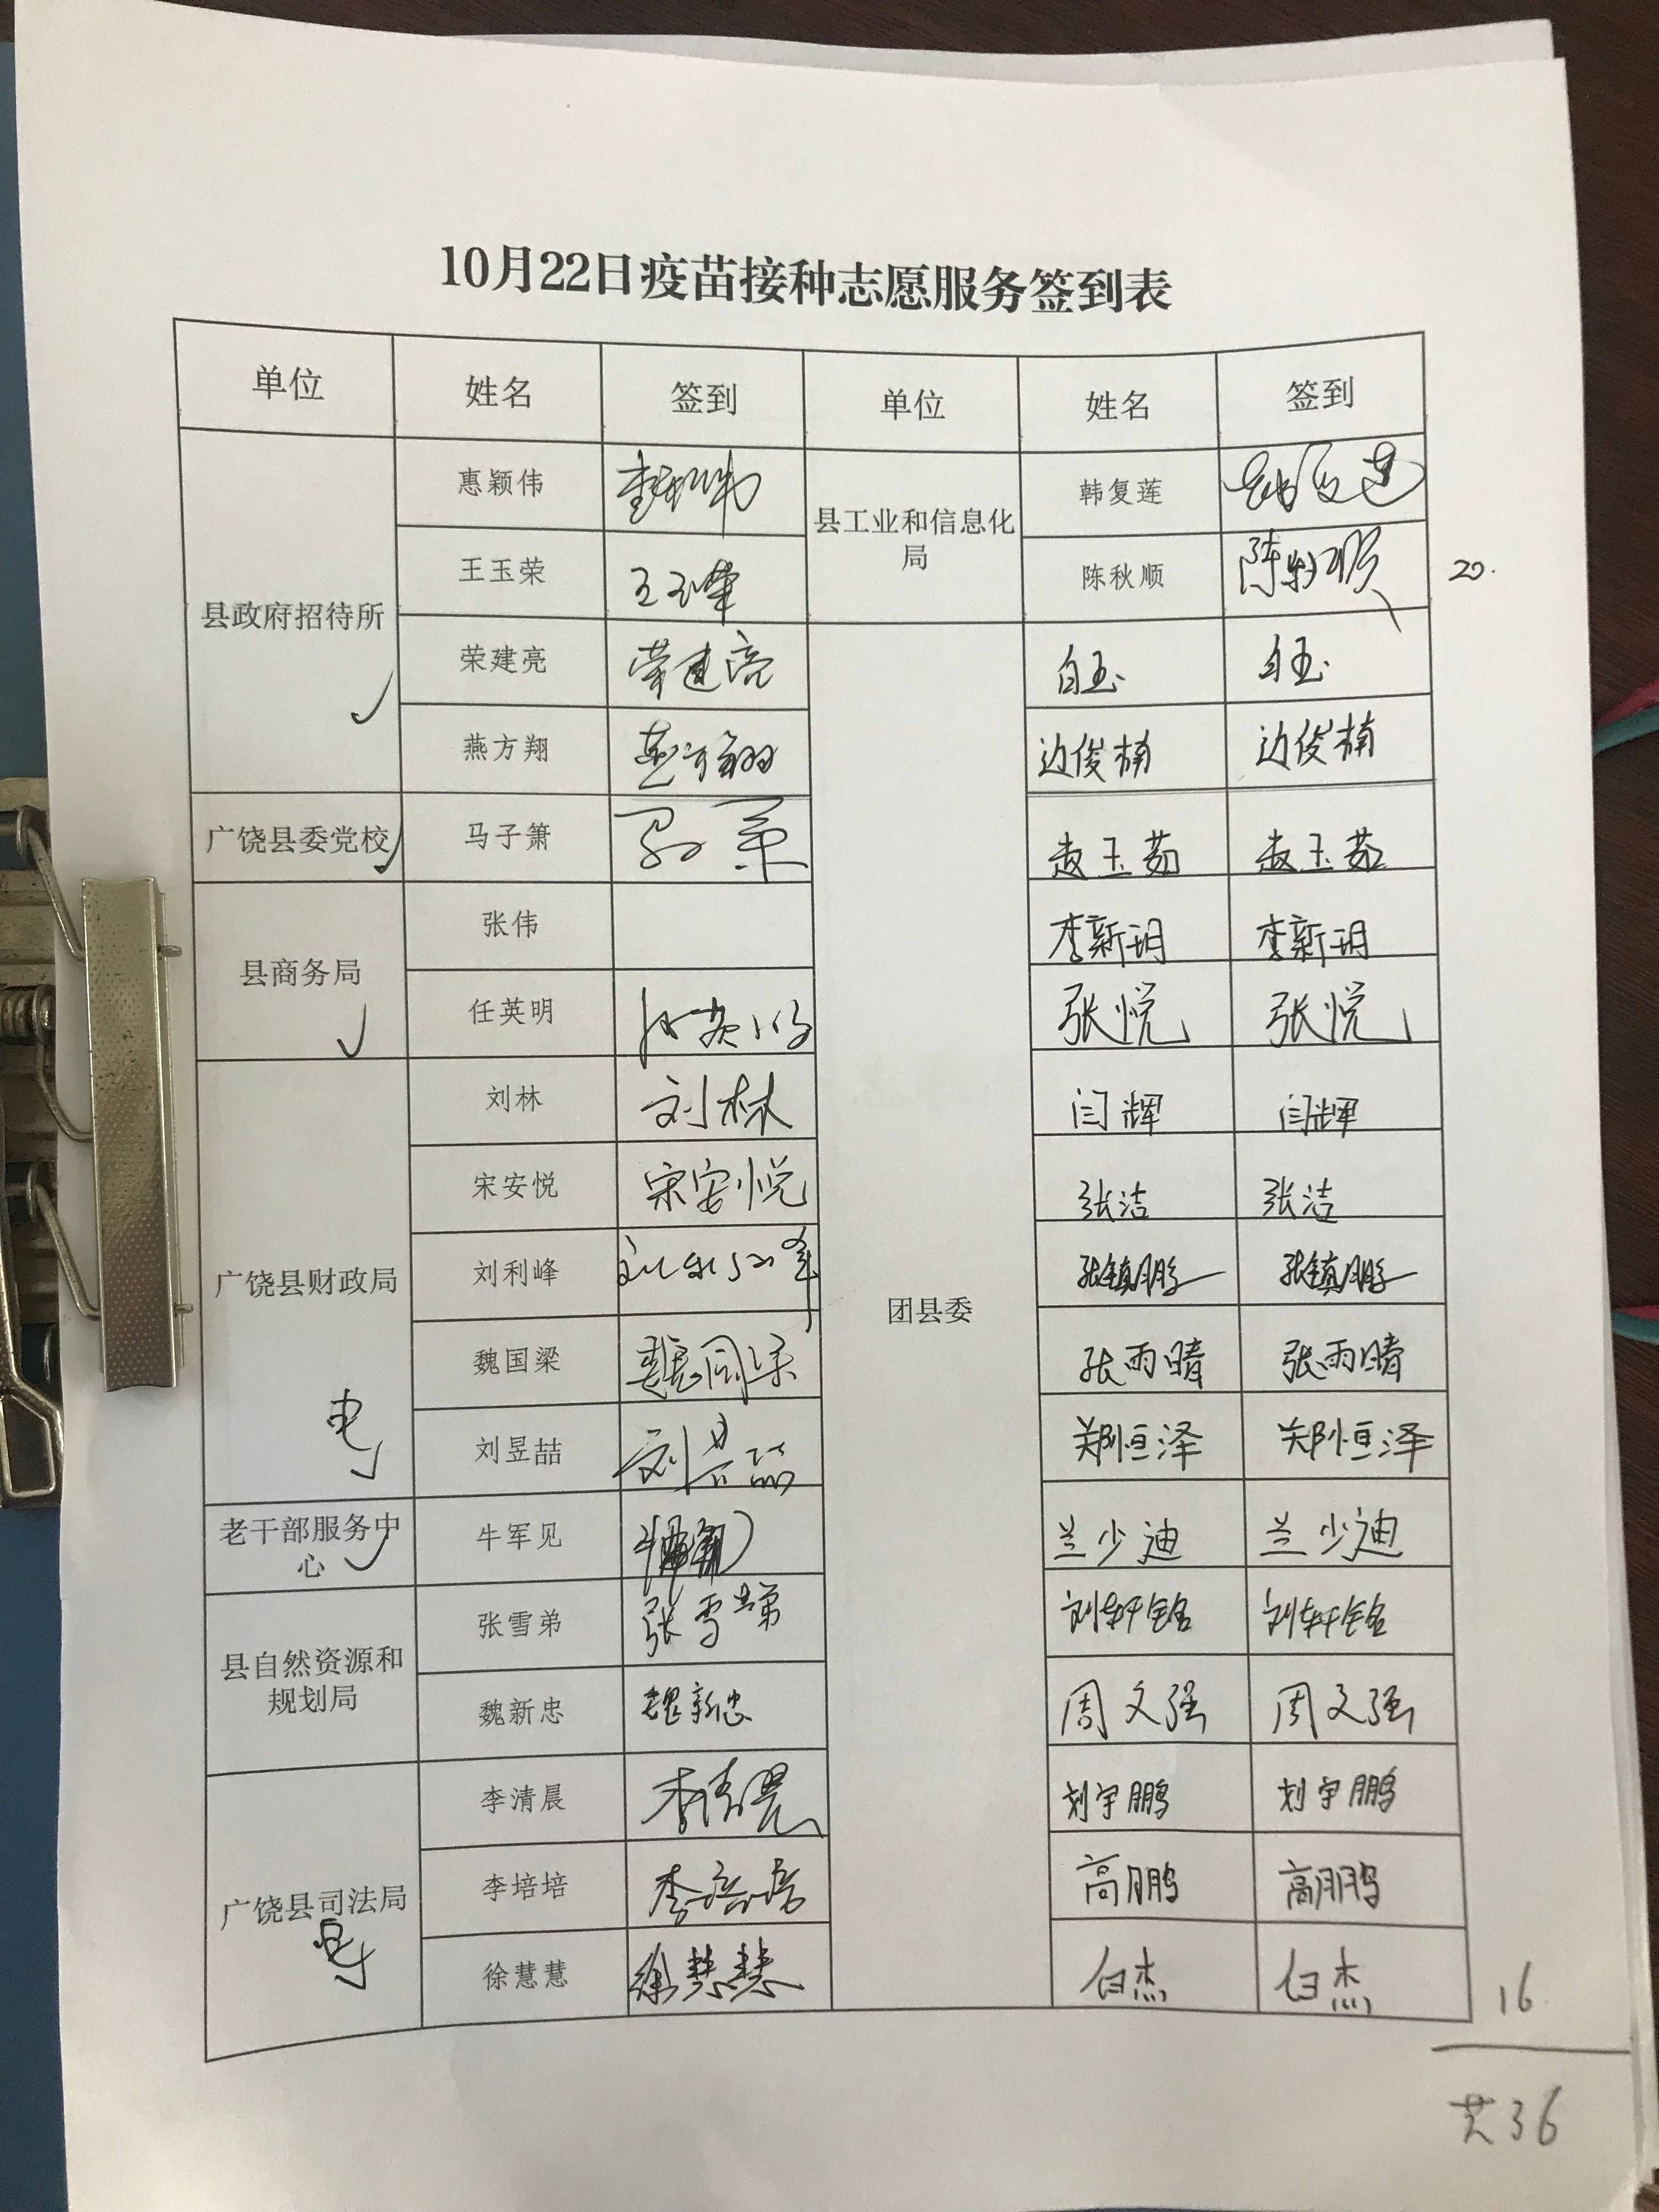 10月22日疫苗接种志愿服务签到表
单位 姓名 签到 单位 姓名 签到
县政府招待所
惠颖伟 惠颖伟
王玉荣 王玉荣
荣建亮 荣建亮
燕方翔 燕方翔
广饶县委党校
马子箫 马子箫
县商务局
张伟
任英明 任英明
广饶县财政局
刘林 刘林
宋安悦 宋安悦
刘利峰 刘利峰
魏国梁 魏国梁
刘昱喆 刘昱喆
老干部服务中
心
牛军见
县自然资源和
规划局
张雪弟 张雪弟
魏新忠 魏新忠
广饶县司法局
李清晨 李清晨
李培培 李培培
徐慧慧 徐慧慧
县工业和信息化
局
韩复莲 韩复莲
陈秋顺 陈秋顺
20.
团县委
自玉 自玉
边俊楠 边俊楠
玉茹 玉茹
李新玥 李新玥
张悦 张悦
闫辉 闫辉
张洁 张洁
张镇鹏 张镇鹏
张雨晴 张雨晴
郑恒泽 郑恒泽
兰少迪 兰少迪
刘轩铭 刘轩铭
周文强 周文强
刘宇鹏 刘宇鹏
高鹏 高鹏
白杰 白杰
16
共36